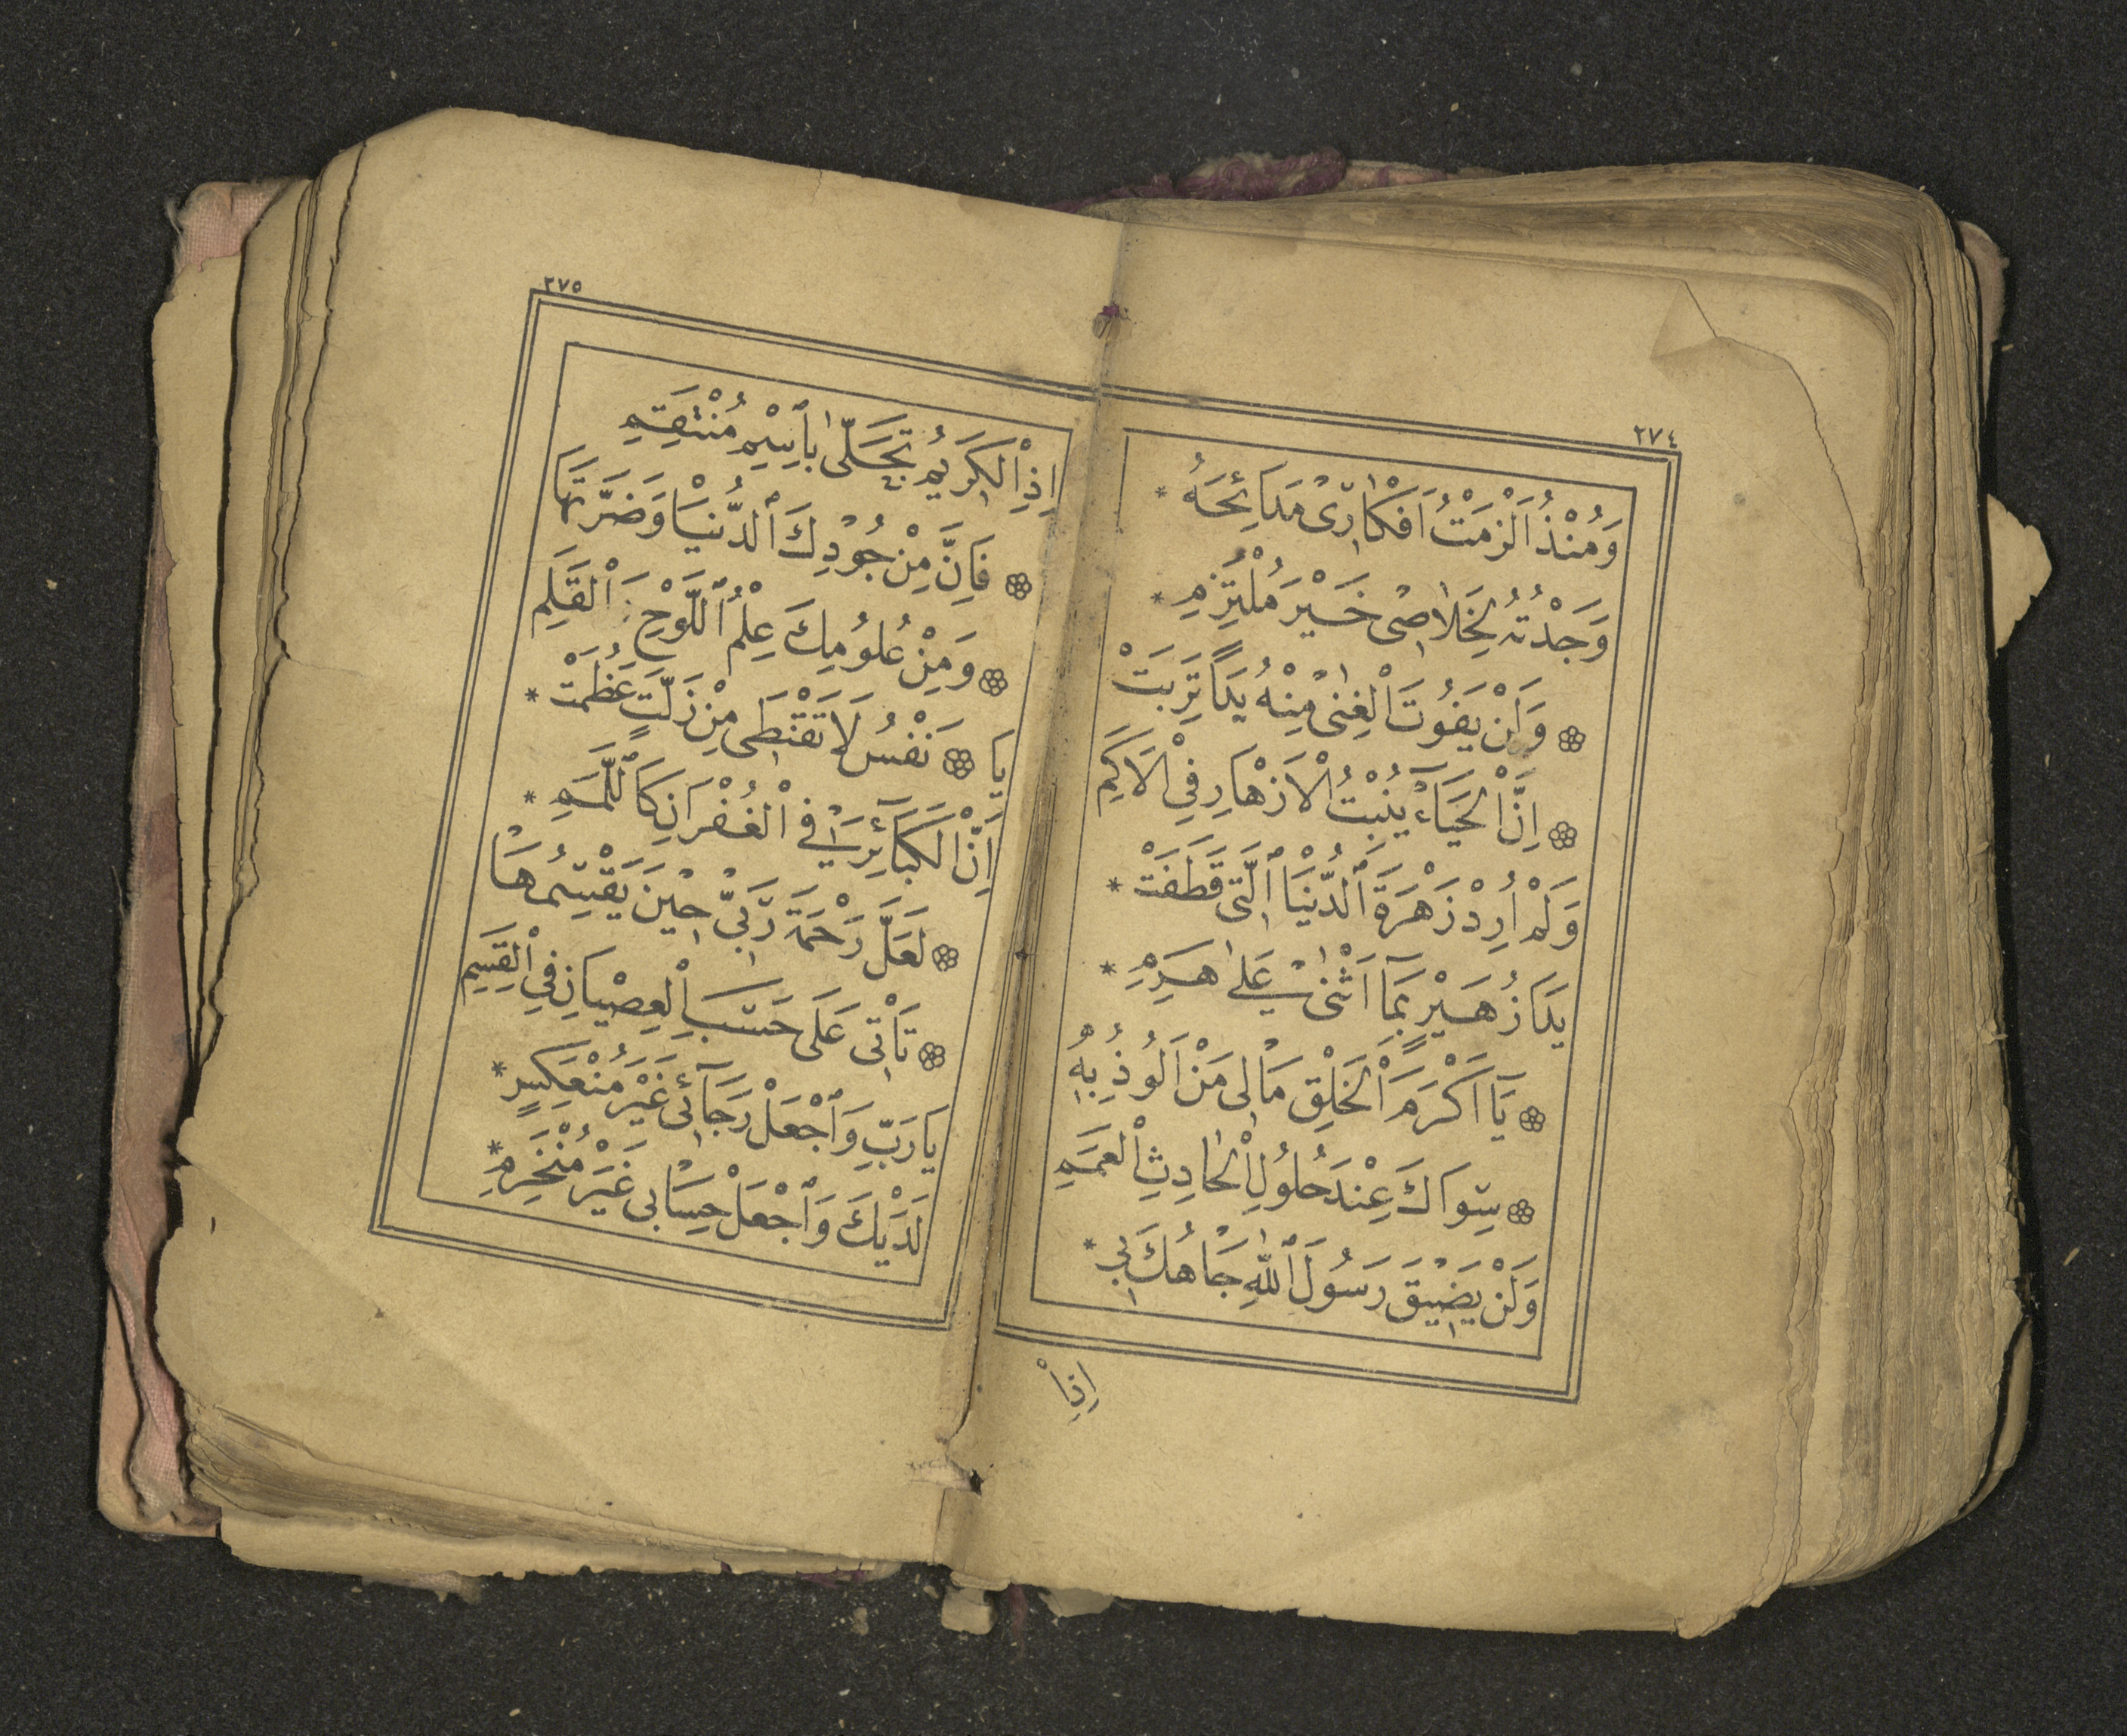 ٢٧٤
وَمُنْذُ اَلْزَمْتُ اَفْكَارٖىْ مَدَائِحَهُ *
وَجَدْتُهُ لِخَلَاصٖى خَيْرَ مُلْتَزِمِ *
وَلَنْ يَفُوتَ الْغِنٰى مِنْهُ يَدًا تَرِبَتْ
اِنَّ الْحَيَاءَ يُنْبِتُ الْاَزْهَارِ فِي الْاَكَمِ
وَلَمْ اُرِدْ زَهْرَةَ ٱلدُّنْيَا الَّتٖى قَطَفَتْ *
يَدَا زُهَيْرٍ بِمَٓا اَثْنٰى عَلٰى هَرِمِ *
يَٓا اَكْرَمَ الْخَلْقِ مَالٖى مَنْ اَلُوذُ بِهٖ
سِوَاكَ عِنْدَ حُلُولِ الْحَادِثِ الْعَمَمِ
وَلَنْ يَضٖيقَ رَسُولَ ٱللّٰهِ جَاهُكَ بٖى *
اِذَاْ
٢٧٥
اِذِ الْكَرٖيمُ تَجَلّٰى بِاِسْمِ مُنْتَقِمِ
فَاِنَّ مِنْ جُوْدِكَ ٱلدُّنْيَا وَضَرَّتَهَا
وَمِنْ عُلُومِكَ عِلْمُ ٱللَّوْحِ وَالْقَلَمِ
يَا نَفْسُ لَا تَقْنَطٖى مِنْ زَلَّتٍ عَظُمَتْ *
اِنَّ الْكَبَٓائِرَ فِي الْغُفْرَانِ كَاللَّمَمِ *
لَعَلَّ رَحْمَةَ رَبّٖى حٖيْنَ يَقْسِمُهَا
تَأْتٖى عَلَى حَسَبِ الْعِصْيَانِ فِي الْقِسَمِ
يَا رَبِّ وَٱجْعَلْ رَجَٓائٖى غَيْرَ مُنْعَكِسٍ *
لَدَيْكَ وَٱجْعَلْ حِسَابٖى غَيْرَ مُنْخَرِمِ *